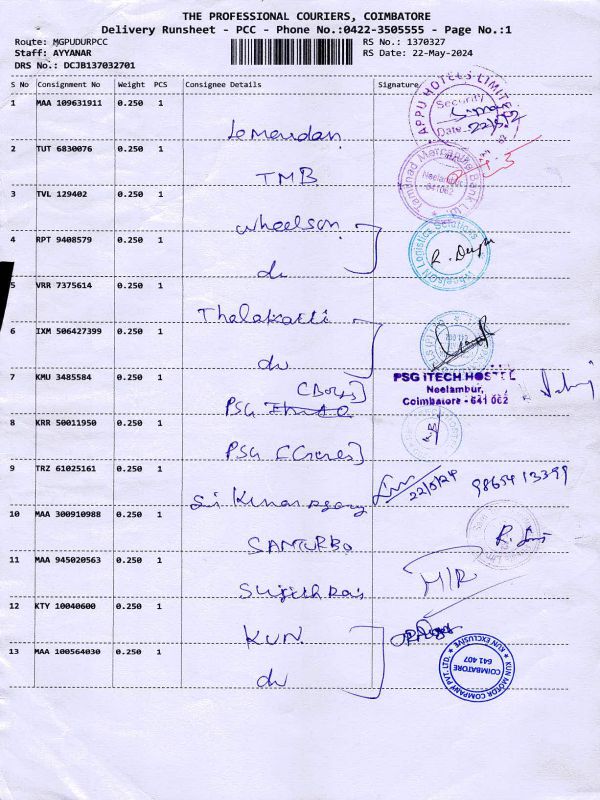 THE PROFESSIONAL COURIERS, COIMBATORE
Delivery Runsheet - PCC - Phone No.:0422-3505555 - Page No.:1
Route: MGPUDURPCC RS No.: 1370327
Staff: AYYANAR RS Date: 22-May-2024
DRS No.: DCJB137032701
S No Consignment No Weight PCS Consignee Details Signature
1 MAA 109631911 0.250 1
Lemeridan
APPU HOTELS LIMITED
Security
Date
2 TUT 6830076 0.250 1
TMB
Tamilnad Mercantile Bank Ltd
Neelambur
641062
3 TVL 129402 0.250 1
wheelson
4 RPT 9408579 0.250 1
do
WheelsON Logistics Solutions
5 VRR 7375614 0.250 1
Thalakatti
6 IXM 506427399 0.250 1
do
7 KMU 3485584 0.250 1
(Boys)
PSG
PSG iTECH HOSTEL
Neelambur,
Coimbatore - 641 062
8 KRR 50011950 0.250 1
PSG
9 TRZ 61025161 0.250 1
Sri Kumaragang
22/5/24 98654 13399
10 MAA 300910988 0.250 1
SANTURBO
11 MAA 945020563 0.250 1
Sujith Raj
M/R
12 KTY 10040600 0.250 1
KUN
13 MAA 100564030 0.250 1
do
KUN MOTOR COMPANY PVT. LTD. * KUN EXCLUSIVE *
COIMBATORE
641 407